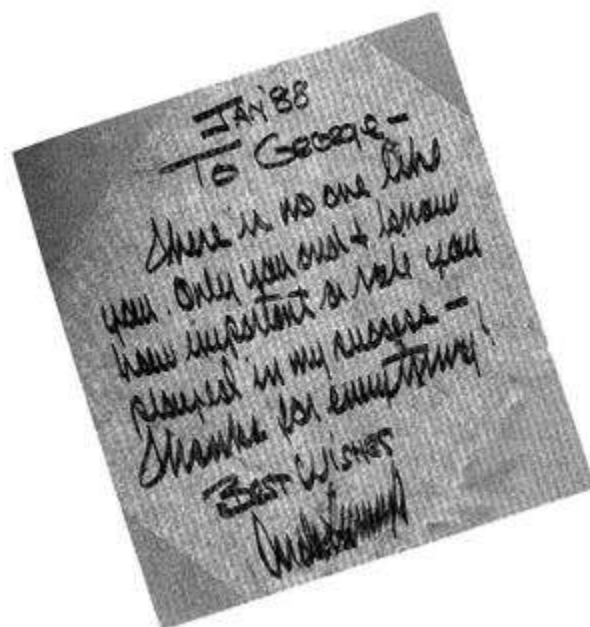 JAN '88
TO GEORGE -
There is no one like
you. Only you and I know
how important a role you
played in my success -
Thanks for everything!
BEST WISHES